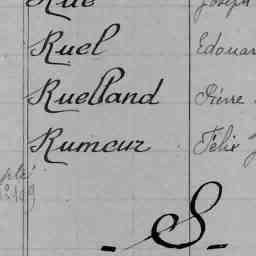 Rue Joseph
Ruel Edouar
Ruelland Pierre
Rumeur Félix J
- S -